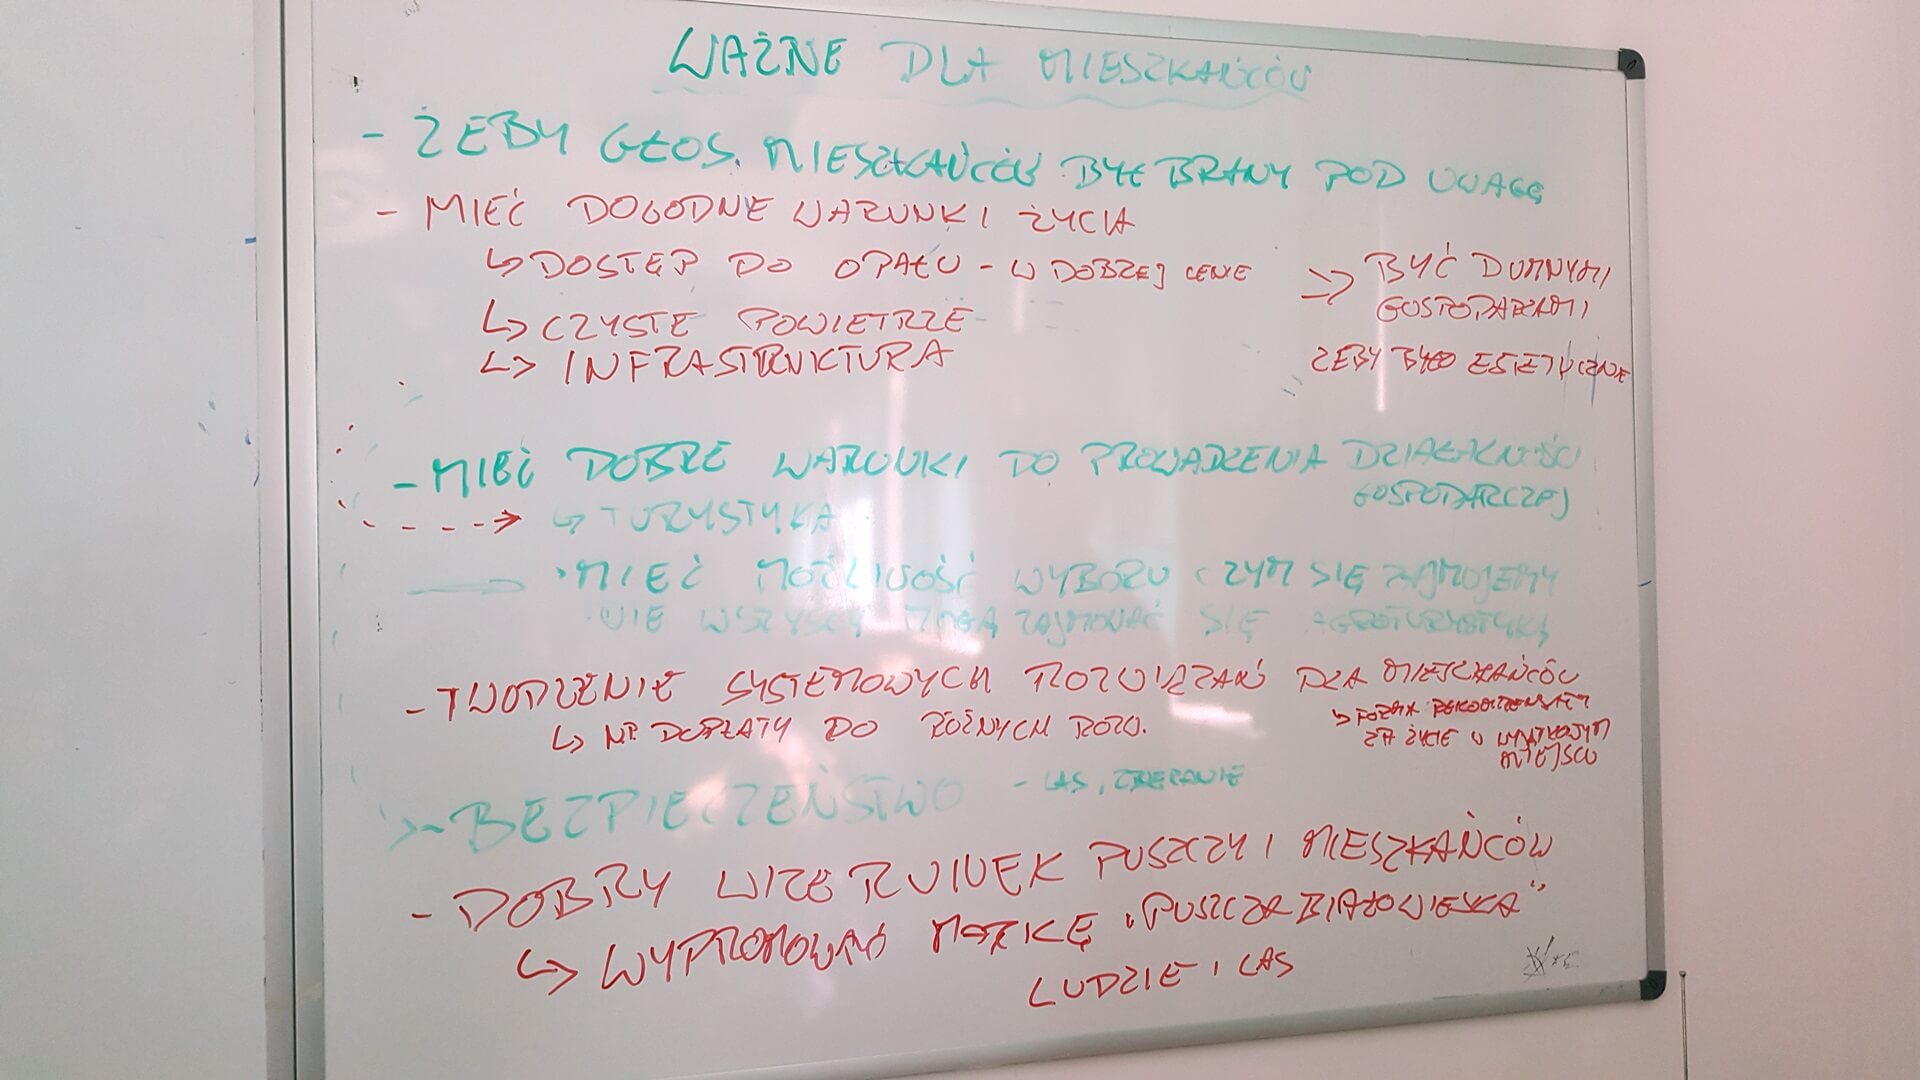 WAŻNE DLA MIESZKAŃCÓW
- ŻEBY GŁOS MIESZKAŃCÓW BYŁ BRANY POD UWAGĘ
- MIEĆ DOGODNE WARUNKI ŻYCIA
↳ DOSTĘP DO OPAŁU - W DOBREJ CENIE
=> BYĆ DUMNYMI
GOSPODARZAMI
↳ CZYSTE POWIETRZE
↳ INFRASTRUKTURA
ŻEBY BYŁO ESTETYCZNE
- MIEĆ DOBRE WARUNKI DO PROWADZENIA DZIAŁALNOŚCI
GOSPODARCZEJ
↳ TURYSTYKA
• MIEĆ MOŻLIWOŚĆ WYBORU CZYM SIĘ ZAJMUJEMY
• NIE WSZYSCY MOGĄ ZAJMOWAĆ SIĘ AGROTURYSTYKĄ
- TWORZENIE SYSTEMOWYCH ROZWIĄZAŃ DLA MIESZKAŃCÓW
↳ NP. DOPŁATY DO RÓŻNYCH ROZW.
↳ FORMA REKOMPENSATY
ZA ŻYCIE W WYJĄTKOWYM
MIEJSCU
- BEZPIECZEŃSTWO - LAS, ZBIERANIE
- DOBRY WIZERUNEK PUSZCZY I MIESZKAŃCÓW
↳ WYPROMOWAĆ MARKĘ "PUSZCZA BIAŁOWIESKA"
LUDZIE I LAS